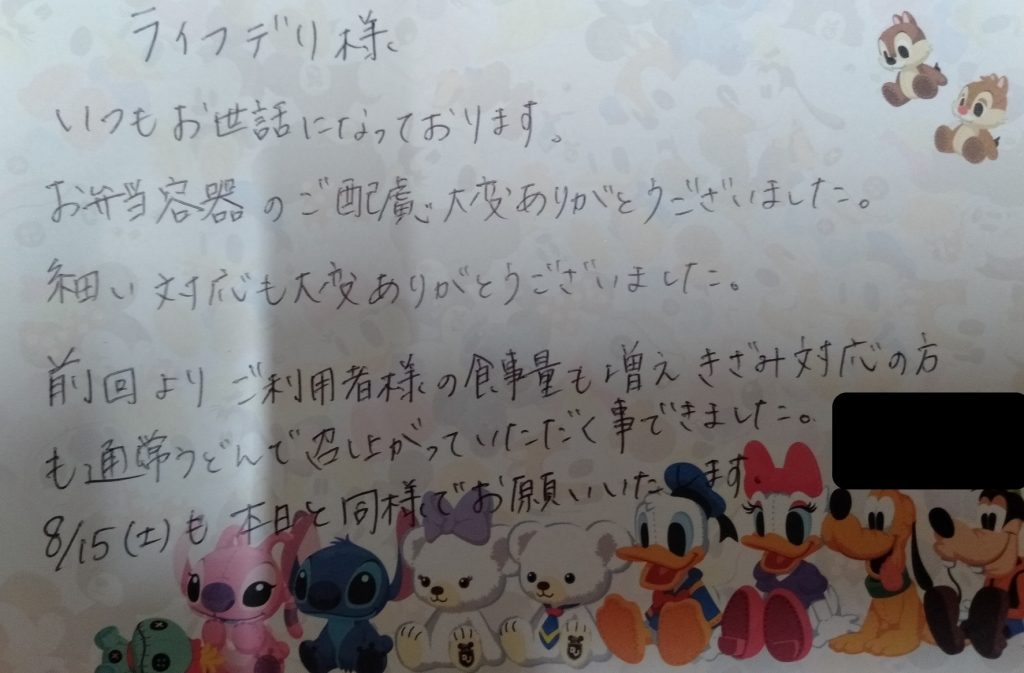 ライフデリ様
いつもお世話になっております。
お弁当容器のご配慮大変ありがとうございました。
細い対応も大変ありがとうございました。
前回よりご利用者様の食事量も増えきざみ対応の方
も通常うどんで召し上がっていただく事できました。
8/15(土)も本日と同様でお願いいたします